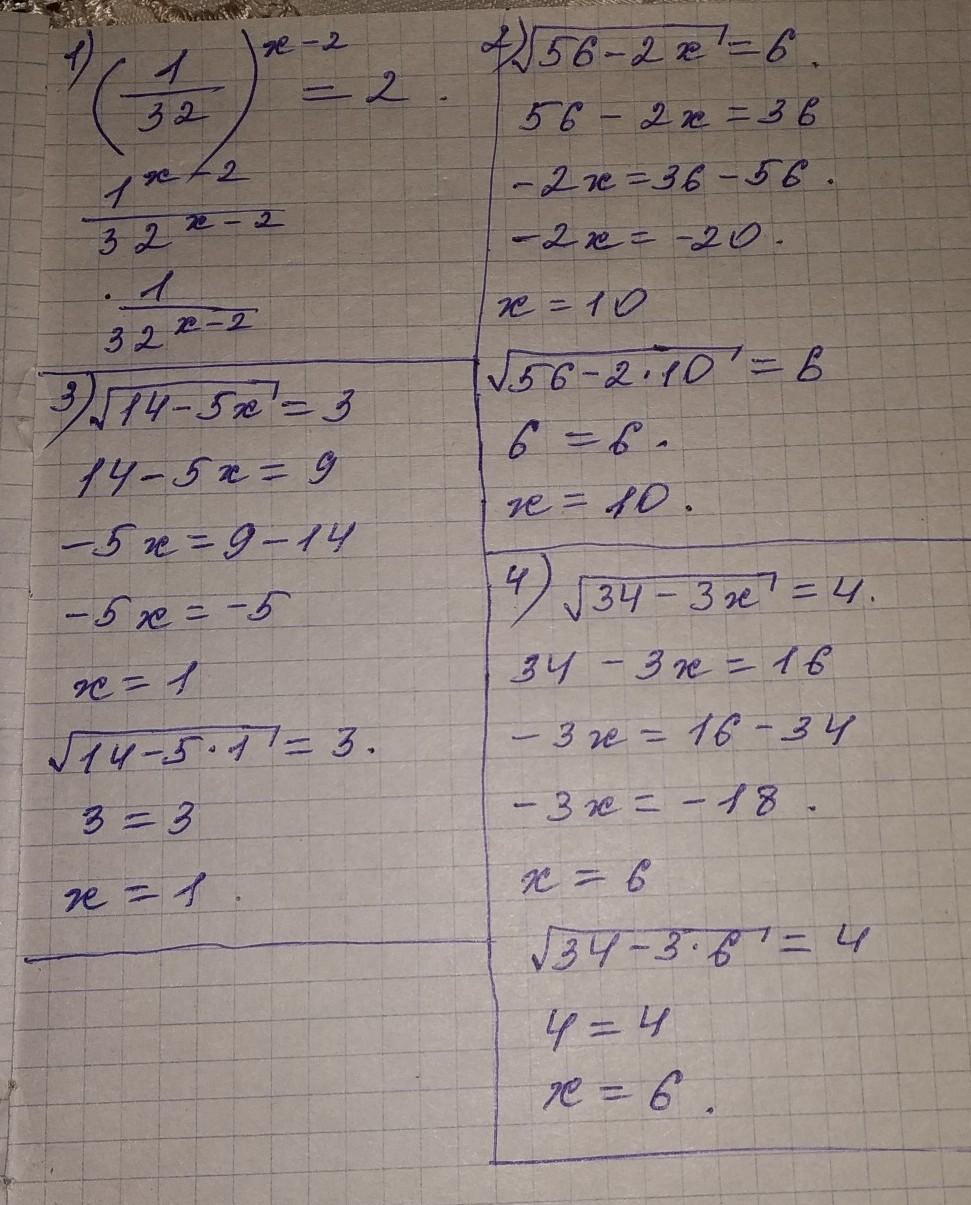 1) (1/32)^(x-2) = 2.
1^(x-2)/32^(x-2)
.1/32^(x-2)
2) √(56-2x) = 6.
56 - 2x = 36
-2x = 36 - 56.
-2x = -20.
x = 10
√(56-2·10) = 6
6 = 6.
x = 10.
3) √(14-5x) = 3
14 - 5x = 9
-5x = 9 - 14
-5x = -5
x = 1
√(14-5·1) = 3.
3 = 3
x = 1.
4) √(34-3x) = 4.
34 - 3x = 16
-3x = 16 - 34
-3x = -18.
x = 6
√(34-3·6) = 4
4 = 4
x = 6.